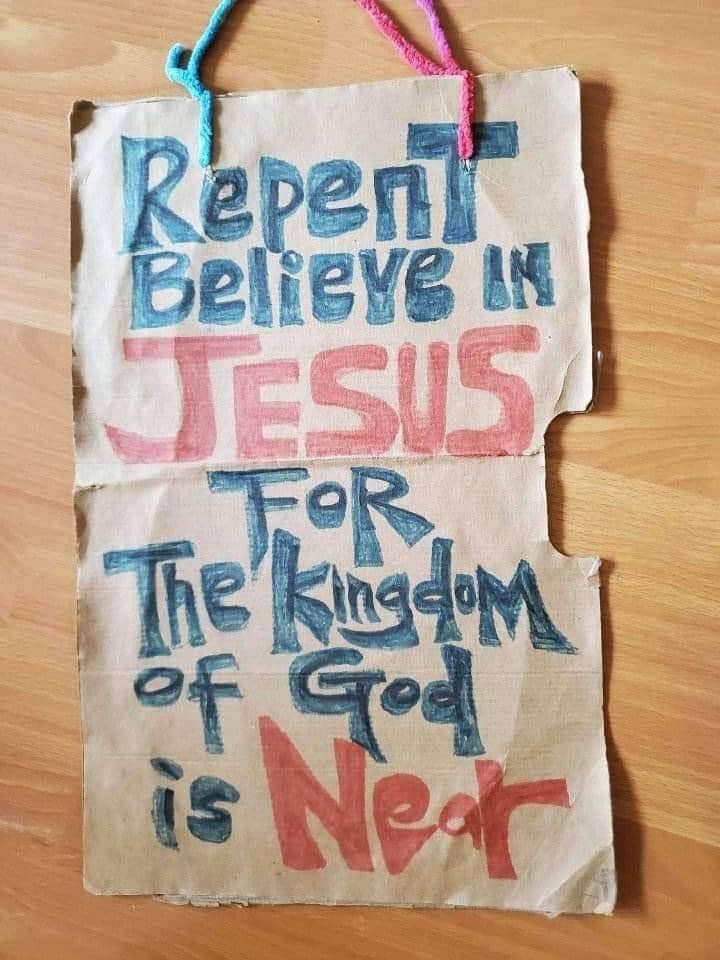 RepenT
Believe IN
JESUS
FOR
The kingdoM
of God
is Near